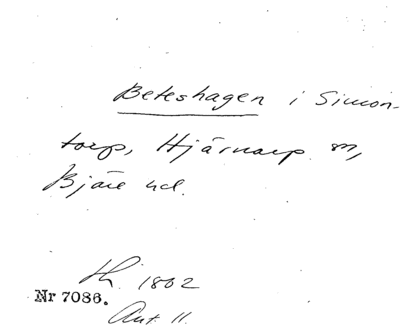 Beteshagen i Simon-
torp, Hjärnarp sn,
Bjäre hd.
Lr. 1802
Nr 7086.
Ant. 11.